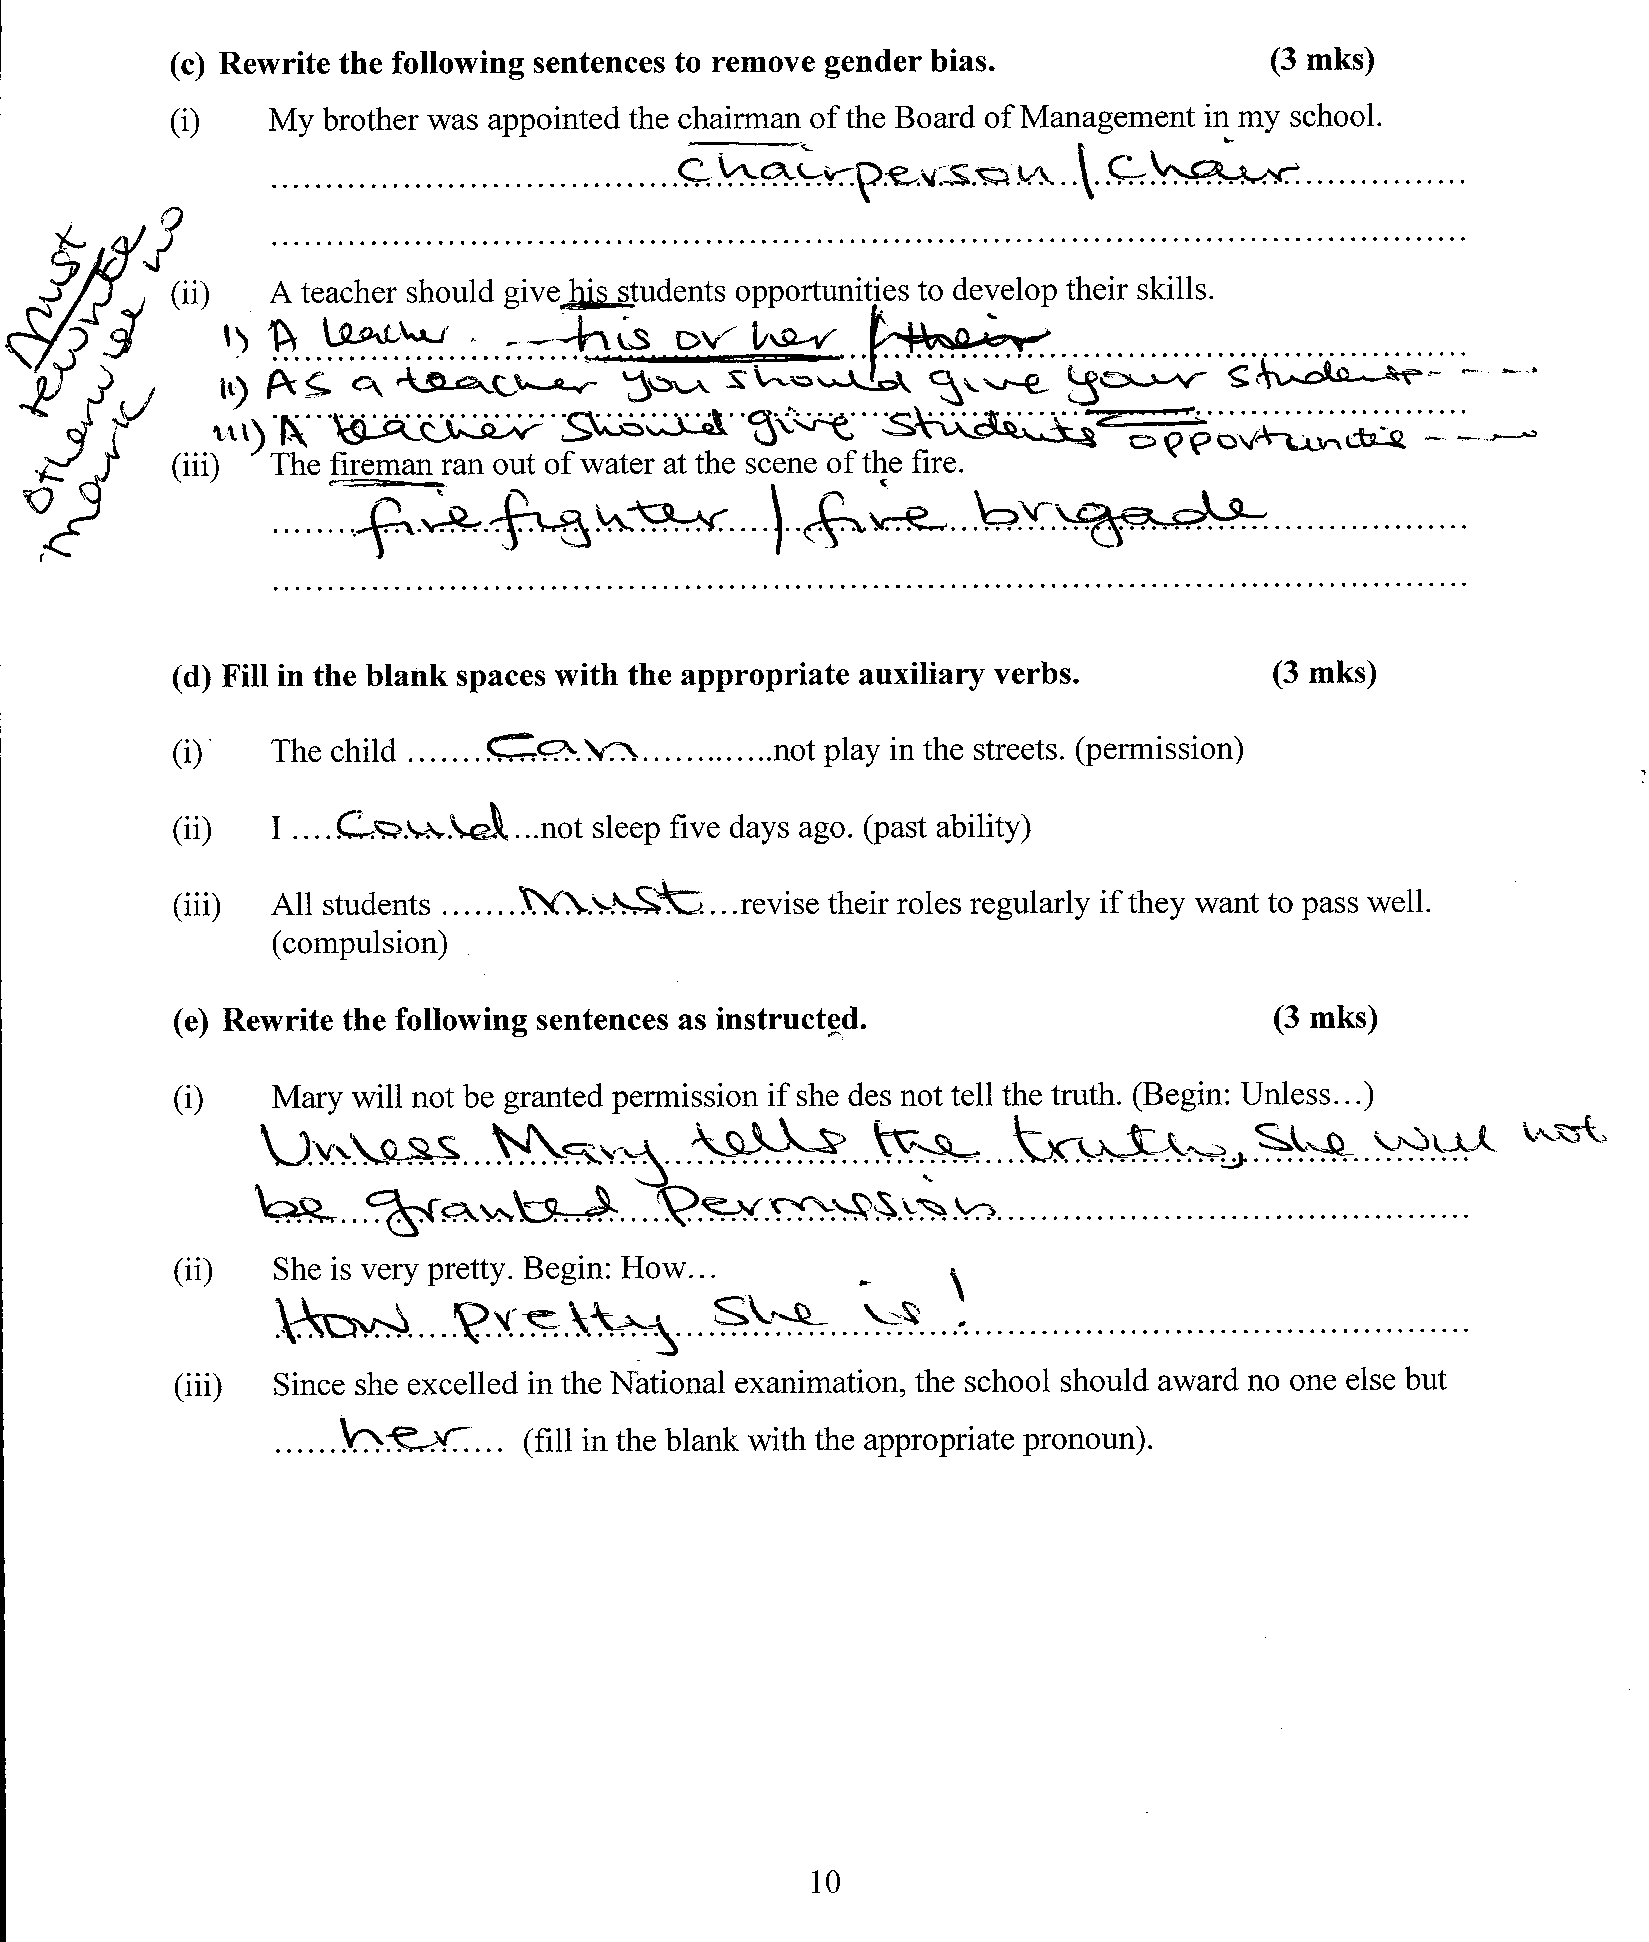 (c) Rewrite the following sentences to remove gender bias. (3 mks)
(i) My brother was appointed the chairman of the Board of Management in my school.
chairperson / Chair
Must
rewrite
otherwise no
mark
(ii) A teacher should give his students opportunities to develop their skills.
i) A teacher - his or her / their
ii) As a teacher you should give your students - - - -
iii) A teacher should give students opportunitie - - - -
(iii) The fireman ran out of water at the scene of the fire.
fire fighter / fire brigade
(d) Fill in the blank spaces with the appropriate auxiliary verbs. (3 mks)
(i) The child .......Can.............not play in the streets. (permission)
(ii) I ....Could...not sleep five days ago. (past ability)
(iii) All students .......Must...revise their roles regularly if they want to pass well.
(compulsion)
(e) Rewrite the following sentences as instructed. (3 mks)
(i) Mary will not be granted permission if she des not tell the truth. (Begin: Unless...)
Unless Mary tells the truth, she will not
be granted permission
(ii) She is very pretty. Begin: How...
How pretty she is!
(iii) Since she excelled in the National exanimation, the school should award no one else but
......her...... (fill in the blank with the appropriate pronoun).
10